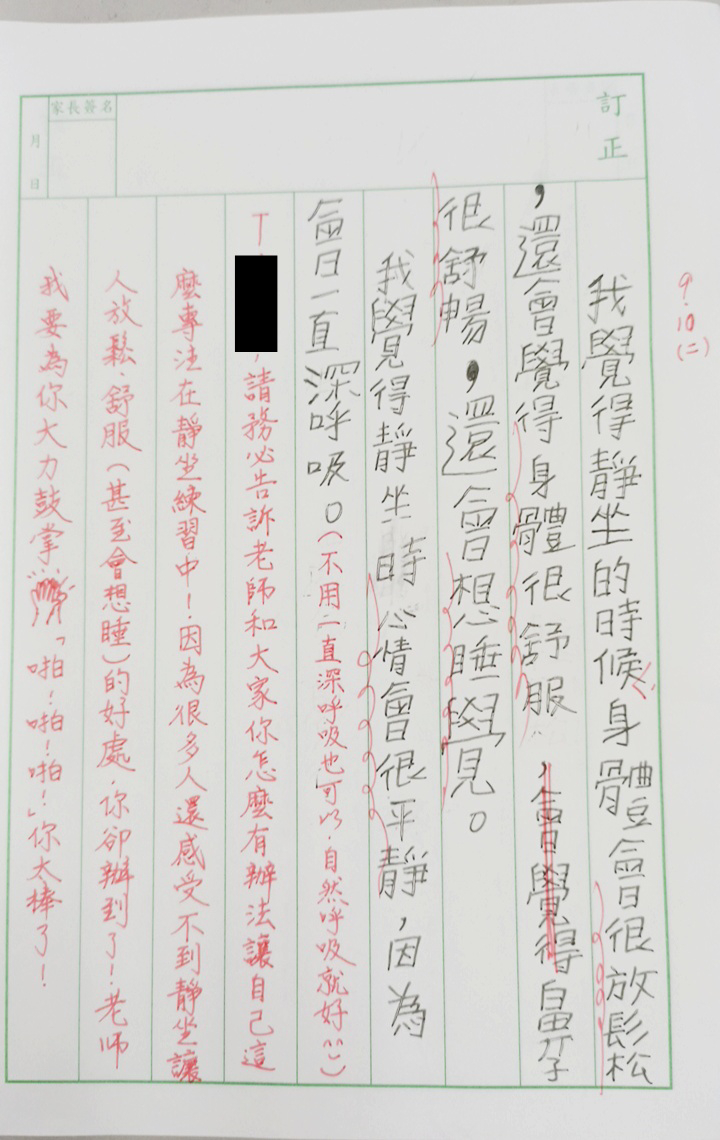 9.10(二)
訂正
家長簽名
月 日
我覺得靜坐的時候身體會很放鬆
，還會覺得身體很舒服，會覺得鼻子
很舒暢，還會想睡覺。
我覺得靜坐時心情會很平靜，因為
會一直深呼吸。(不用一直深呼吸也可以.自然呼吸就好^^)
丁
，請務必告訴老師和大家你怎麼有辦法讓自己這
麼專注在靜坐練習中！因為很多人還感受不到靜坐讓
人放鬆.舒服(甚至會想睡)的好處.你卻辦到了！老師
我要為你大力鼓掌「啪！啪！啪！」你太棒了！